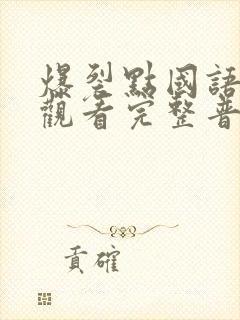 爆裂點國語
觀看完整普
貢確